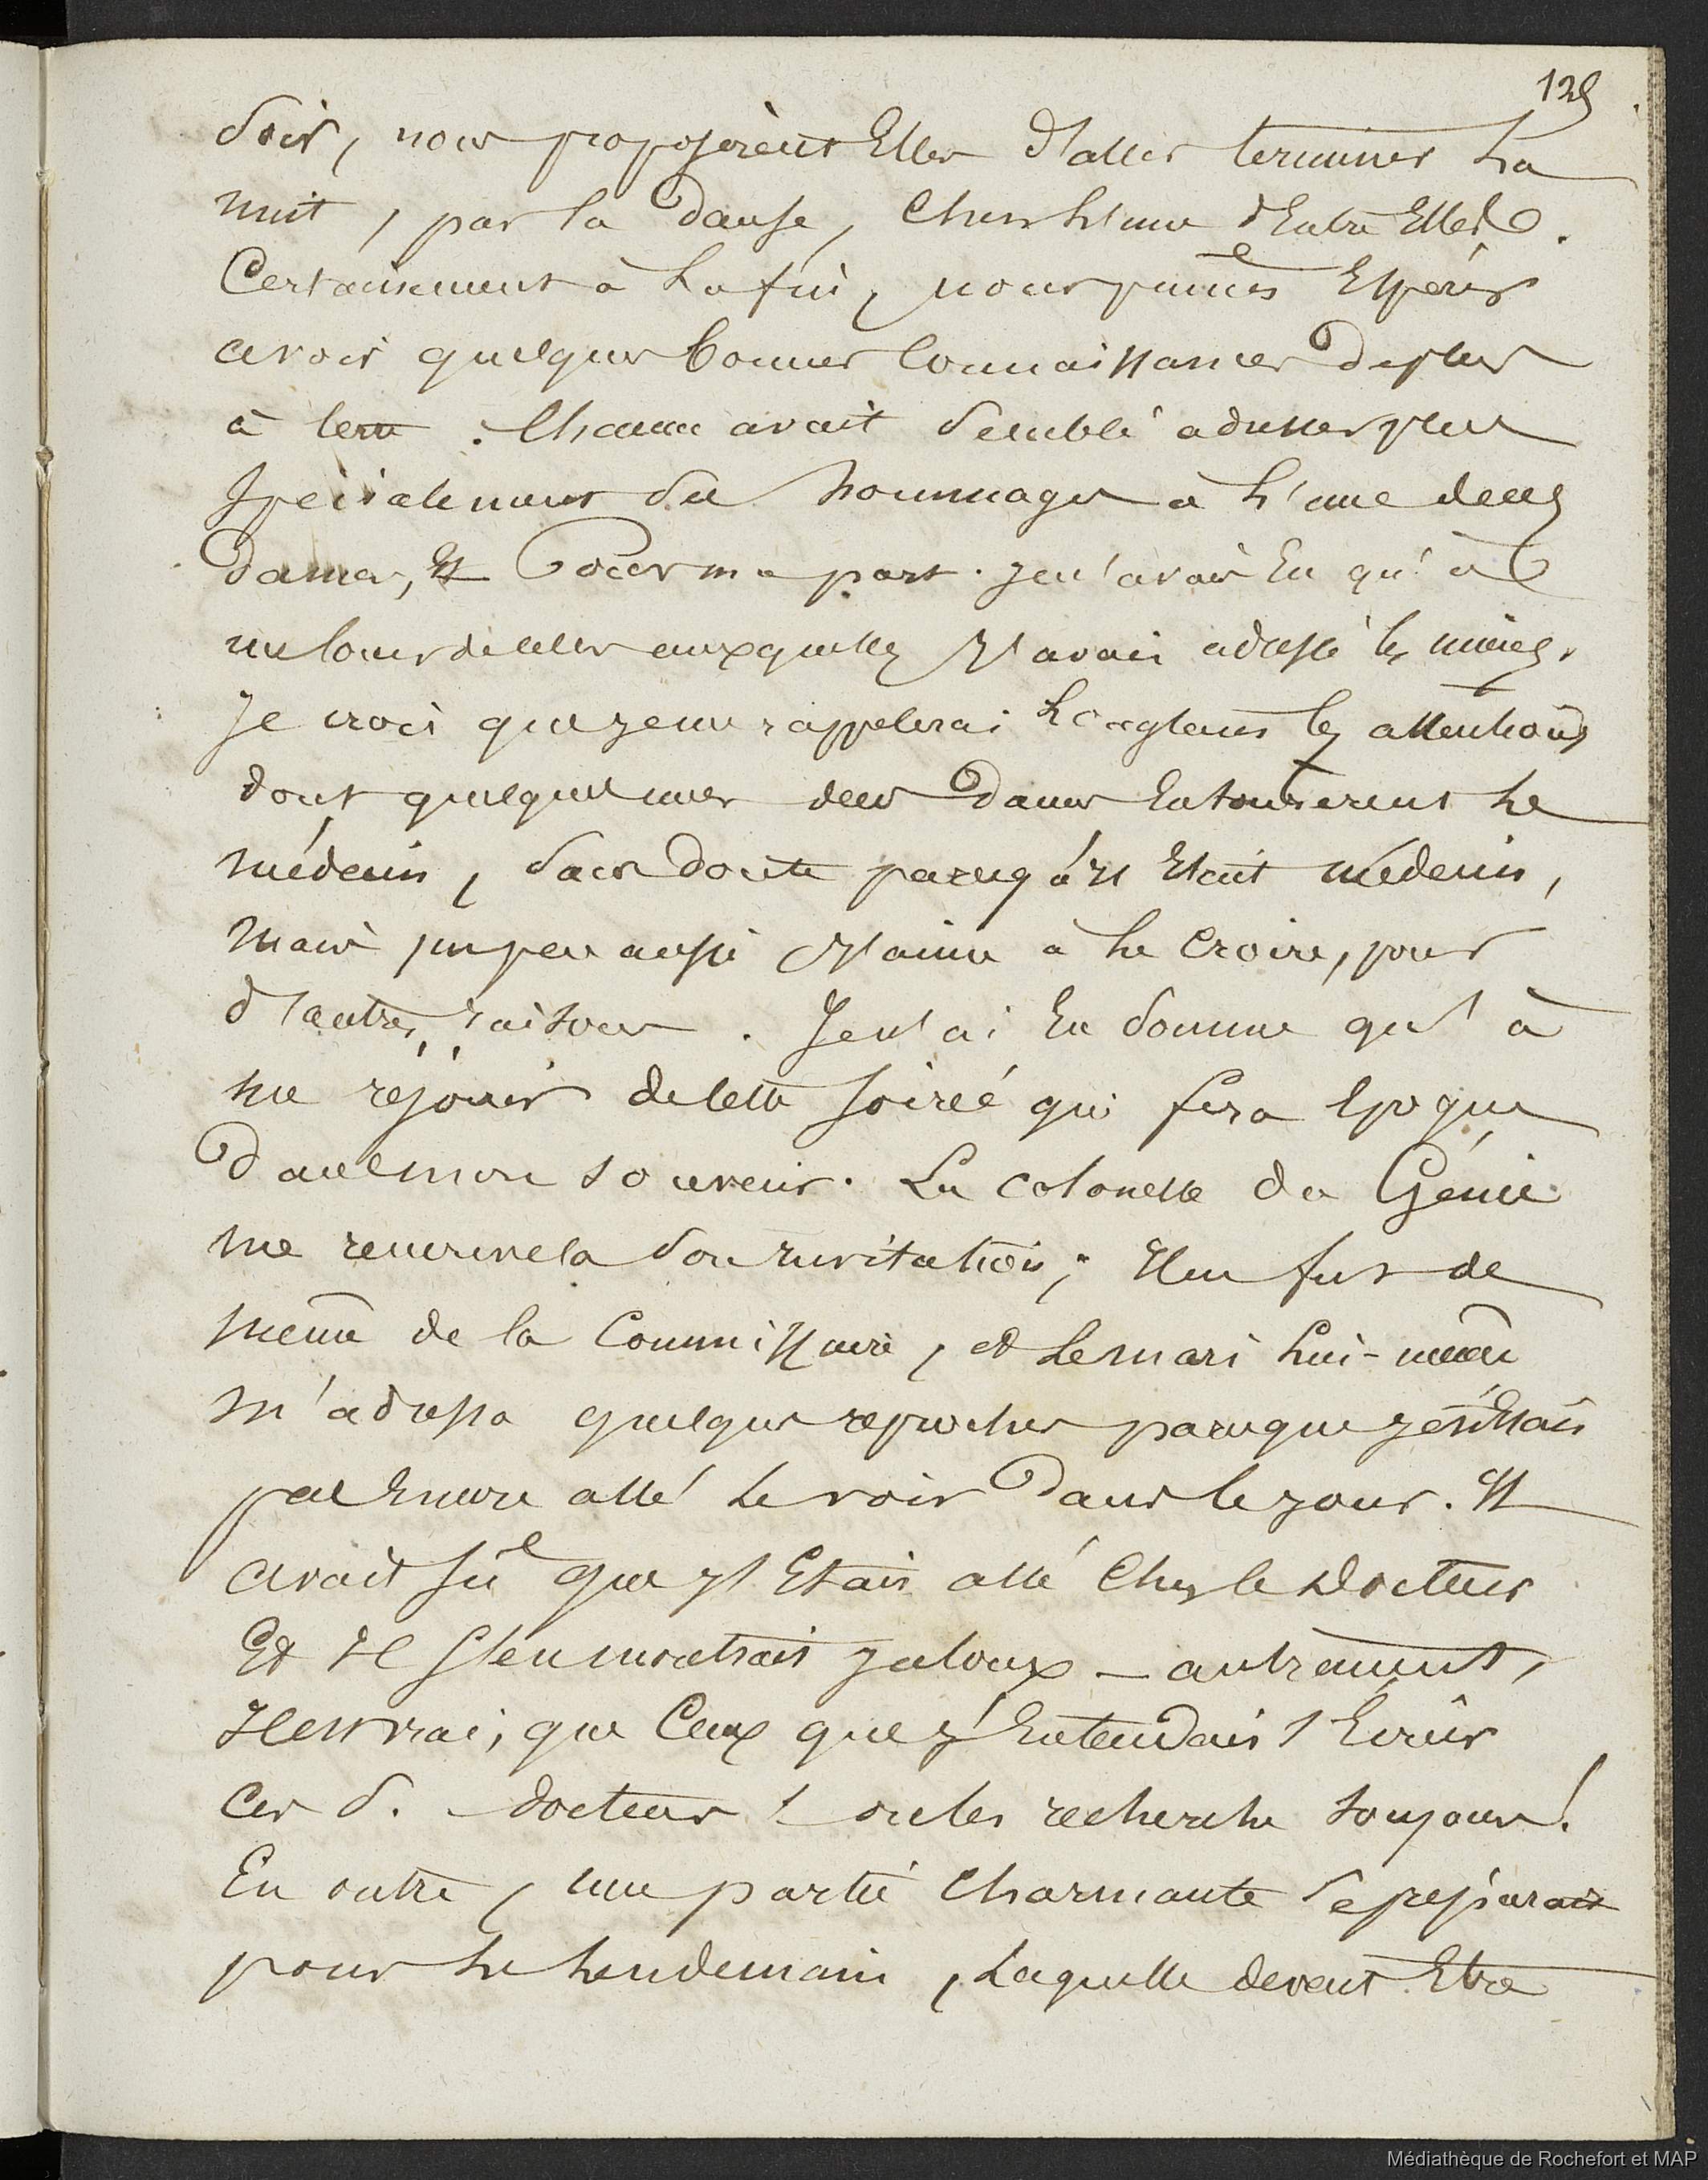 125
Soir, nous proposèrent Elles d'aller terminer la
nuit, par la danse, chez l'une d'Entre Elles.
Certainement à la fin, nous pumes Espérer
avoir quelques bonnes connaissances de plus
à terre. Chacun avait semblé adresser plus
spécialement des hommages à l'une des
Dames, Et Pour ma part. je n'avais Eu qu'à
me louer de celles auxquelles J'avais adressé les miens.
Je crois que je me rappelerai longtems les attentions
dont quelques unes des Dames Entourerent le
médecin, sans doute parcequ'Il Etait médecin,
mais un peu aussi J'aime à le croire, pour
d'autres raisons. Je n'ai En somme qu'à
me réjouir de cette soirée qui fera Epoque
Dans mon souvenir. La colonelle du Génie
me renouvela son Invitation; Il en fut de
même de la Commissaire, et le mari lui-même
m'adressa quelques reproches parceque je n'Etais
pas Encore allé le voir Dans le jour. Il
avait su que j'Etais allé Chez le Docteur
Et Il s'en montrait jaloux – autrement,
Il est vrai, que Ceux que j'Entendais s'Écrier
Ces S. docteurs! on les recherche toujours!
En outre, une partie Charmante se préparait
pour le lendemain, laquelle devait Etre
Médiathèque de Rochefort et MAP